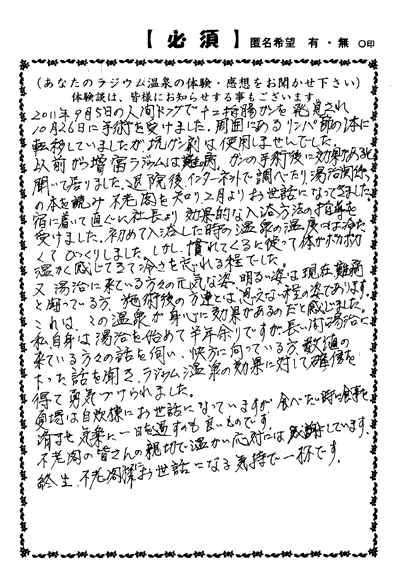 【 必 須 】 匿名希望 有 ・ 無 〇印
(あなたのラジウム温泉の体験・感想をお聞かせ下さい)
体験談は、皆様にお知らせする事もございます。
2011年9月5日の人間ドッグで十二指腸ガンを発見され
10月26日に手術を受けました。周囲にあるリンパ節の1本に
転移していましたが抗ガン剤は使用しませんでした。
以前から増富ラジウムは難病、ガンの手術後に効果があると
聞いて居りました、退院後インターネットで調べたり湯治関係
の本を読み 不老閣を知り2月よりお世話になってきました。
宿に着いて直ぐに社長より効果的な入浴方法の指導を
受けました。初めて入浴した時の温泉の温度には冷た
くてびっくりしました。しかし、慣れてくるに従って体がポカポカ
温かく感じてきて冷さを忘れる程でした。
又 湯治に来ている方々の元気な姿、明るい姿は現在難病
と闘っている方、施術後の方達とは思えない程の姿であります
これは、この温泉が身心に効果があるのだと感じました。
私自身は湯治を始めて半年余りですが長い間湯治に
来ている方々の話を伺い、快方に向っている方 数値の
下った話を聞き、ラジウム温泉の効果に対して確信を
得て勇気づけられました。
自炊棟にお世話になっていますが 食べたい時に食事を
済ませ 気楽に一日を過すのも良いものです。
不老閣の皆さんの親切で温かい応対には感謝しています。
終生 不老閣様お世話になる気持で一杯です。